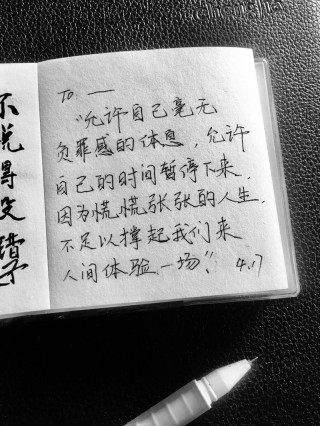 To. —
“允许自己毫无
负罪感的体息，允许
自己的时间暂停下来.
因为慌慌张张的人生.
不足以撑起我们来
人间体验一场”  4.17
不说得没错